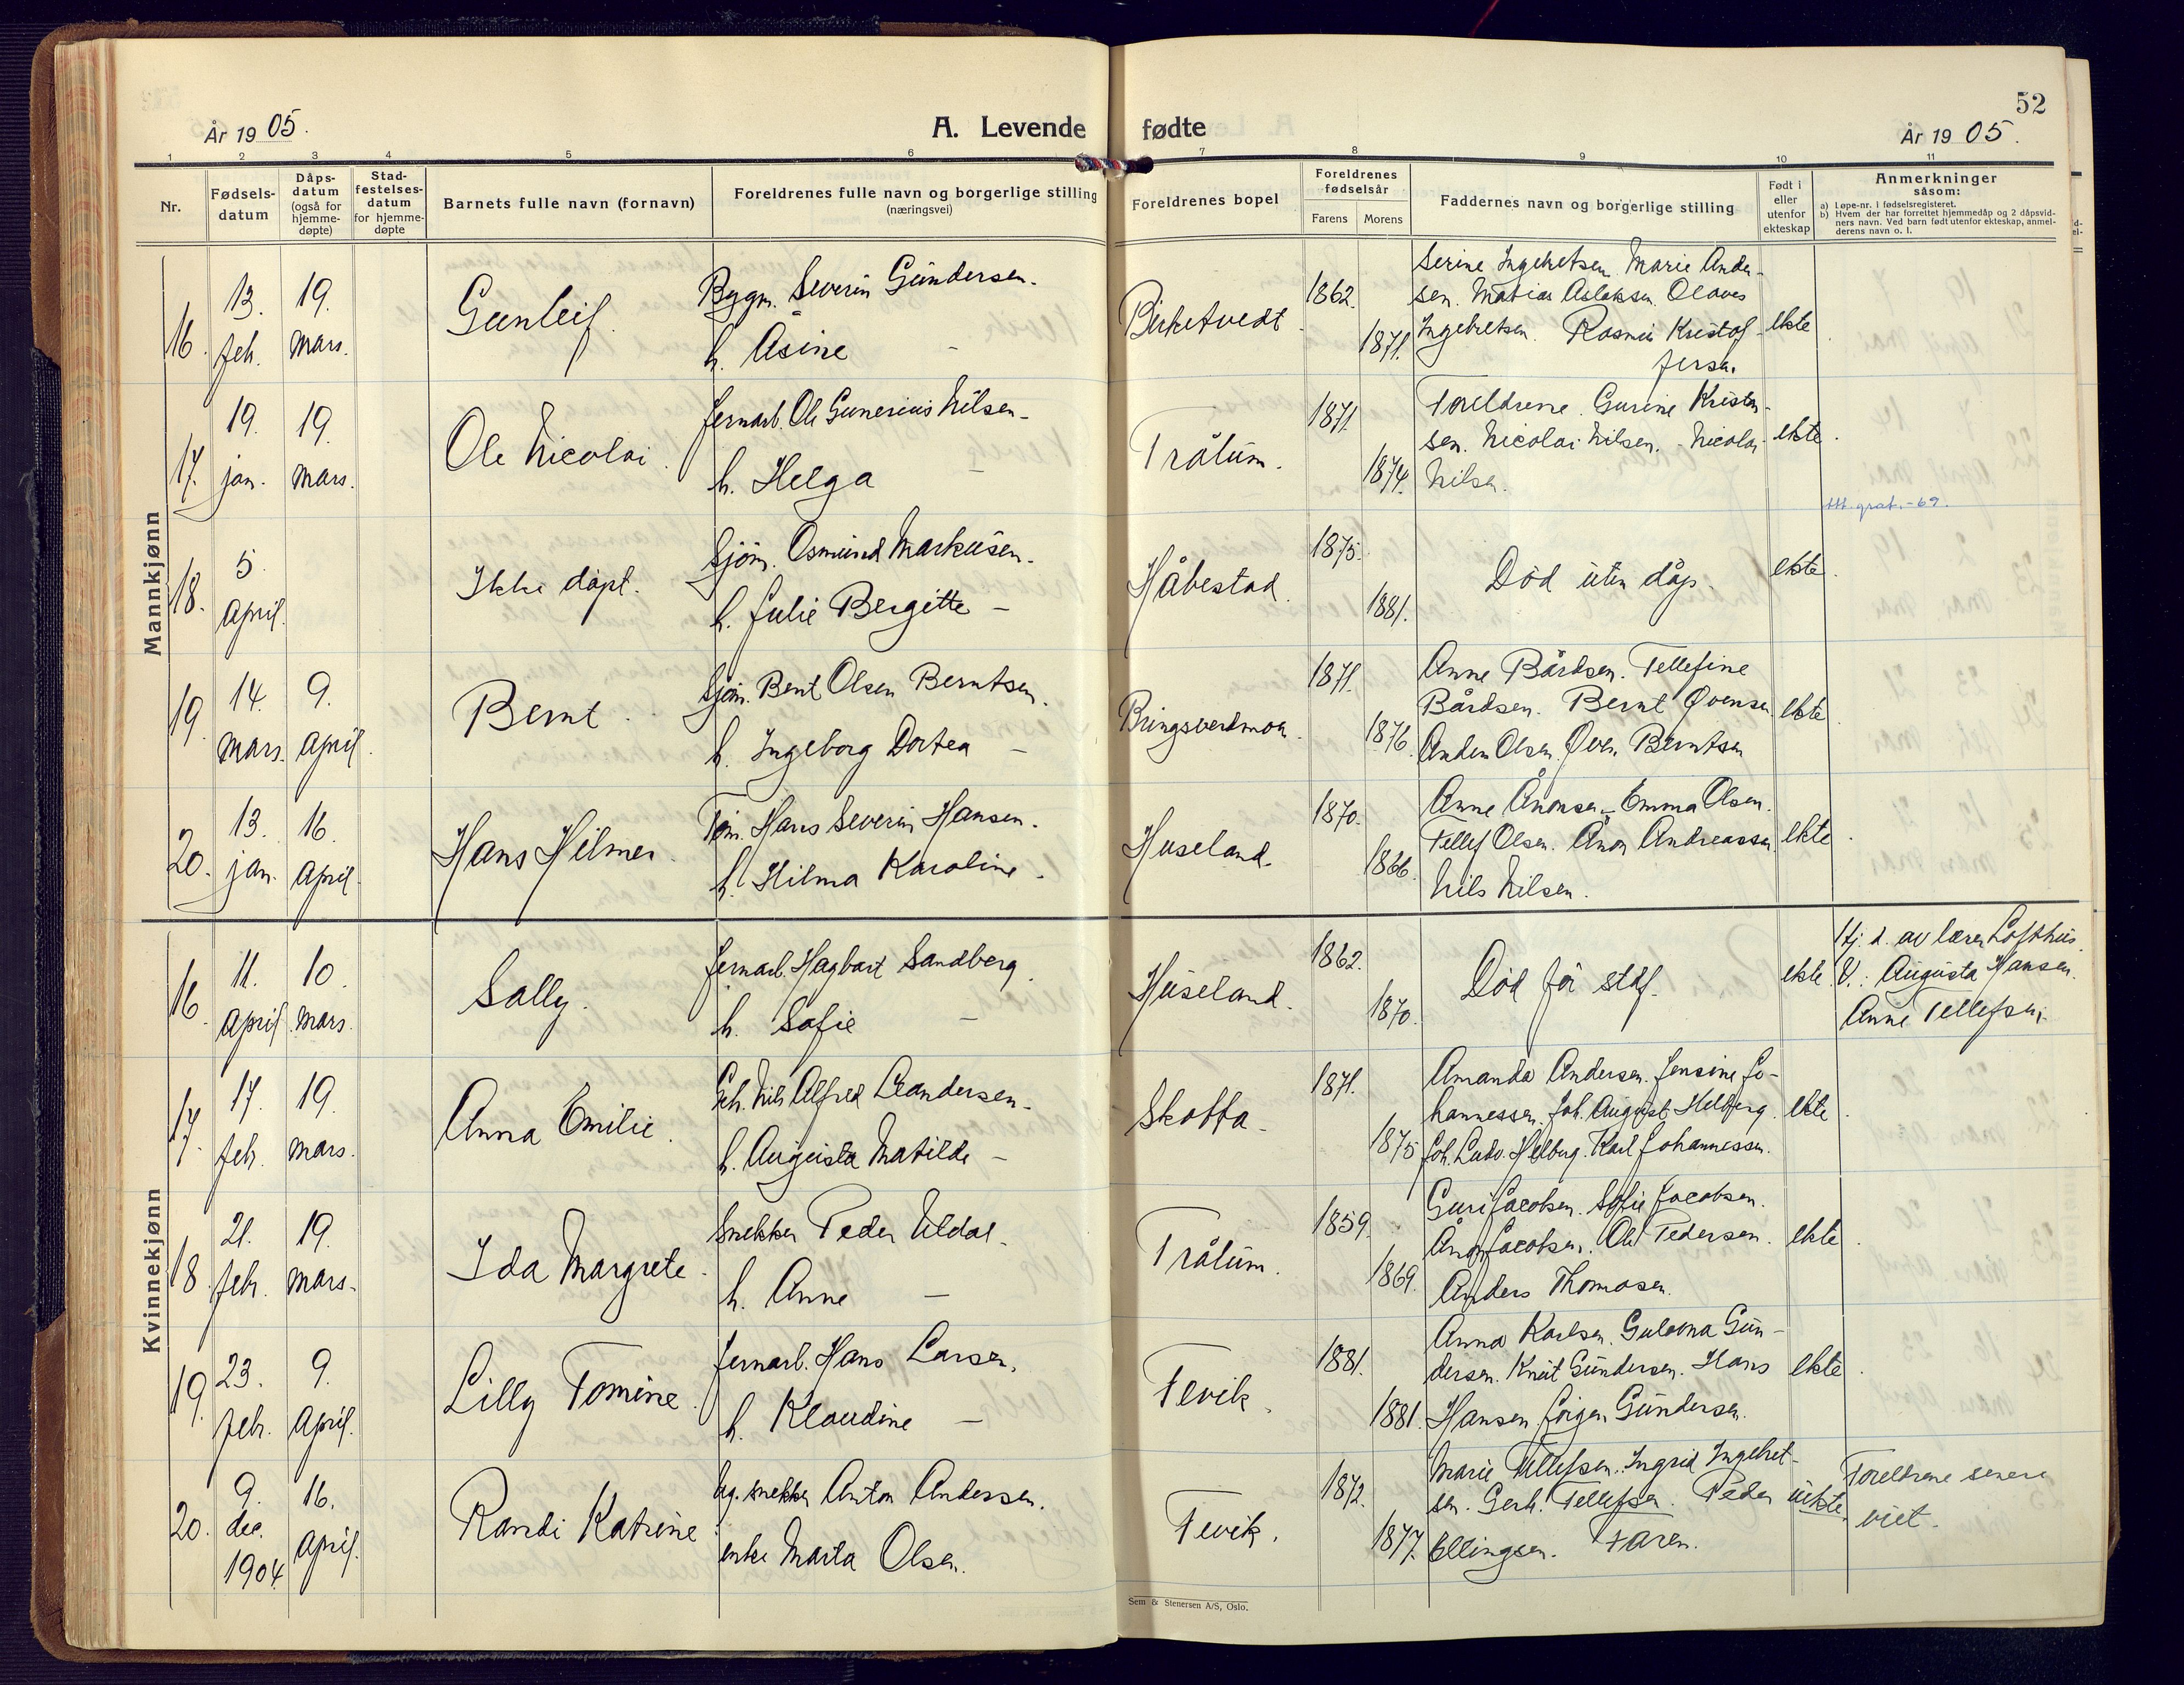 52
År 1905.
A. Levende fødte
År 1905.
1 2 3 4 5 6 7 8 9 10 11
Nr.
Fødsels-
datum
Dåps-
datum
(også for
hjemme-
døpte)
Stad-
festelses-
datum
for hjemme-
døpte
Barnets fulle navn (fornavn)
Foreldrenes fulle navn og borgerlige stilling
(næringsvei)
Foreldrenes bopel
Foreldrenes
fødselsår
Farens Morens
Faddernes navn og borgerlige stilling
Født i
eller
utenfor
ekteskap
Anmerkninger
såsom:
a) Løpe-nr. i fødselsregisteret.
b) Hvem der har forrettet hjemmedåp og 2 dåpsvid-
ners navn. Ved barn født utenfor ekteskap, anmel-
derens navn o. l.
Mannkjønn
16.
13.
feb.
19.
mars.
Gunleif
Bygm. Severin Gundersen.
h. Asine -
Birketvedt
1862.
1871.
Serine Ingebretsen. Marie Ander-
sen. Matias Aslaksen. Olaves
Ingebretsen. Rasmus Kristof-
fersen.
ekte
17.
19.
jan.
19.
mars.
Ole Nicolai.
Jernarb. Ole Gunerius Nilsen-
h. Helga -
Trålum.
1871.
1874.
Foreldrene. Gurine Kristen-
sen. Nicolai Nilsen. - Nicolai
Nilsen.
ekte.
-69.
18.
5
April.
Ikke døpt.
Sjøm. Osmund Markusen.
h. Julie Bergitte -
Håbestad.
1875.
1881.
Død uten dåp.
ekte.
19.
14.
mars.
9.
April.
Bernt.
Sjøm. Bent Olsen Berntsen.
h. Ingeborg Dortea -
Bringsverdmoen.
1871.
1876.
Anne Bårdsen. Tellefine
Bårdsen. Bernt Øvensen
Anders Olsen. Øven Berntsen
ekte
20.
13.
jan.
16.
April.
Hans Hilmer.
Tøm. Hans Severin Hansen.
h. Hilma Karoline.
Huseland.
1870.
1866.
Anne Ånonsen. - Emma Olsen.
Tellef Olsen. Ånon Andreassen.
Nils Nilsen.
ekte
Kvinnekjønn
16.
11.
April.
10.
mars.
Sally.
Jernarb. Hagbart Sandberg.
h. Sofie -
Huseland.
1862.
1870.
Død før stdf.
ekte.
Hj. d. av lærer Lofthus.
V.: Augusta Hansen.
Anne Tellefsen.
17.
17.
feb.
19.
mars.
Anna Emilie.
Nils Alfred Leandersen-
h. Augusta Matilde -
Skotta.
1871.
1875
Amanda Andersen. Jensine Jo-
hannessen. Joh. August Helberg.
Joh. Ludv. Helberg. Karl Johannessen.
ekte
18.
21.
febr.
19.
mars-
Ida Margrete.
Snekker Peder Uldal.
h. Anne -
Trålum.
1859.
1869.
Guri Jacobsen. Sofie Jacobsen.
Ånon Jacobsen. Ole Pedersen.
Anders Thomasen.
ekte
19.
23.
febr.
9.
April.
Lilly Tomine.
Jernarb. Hans Larsen.
h. Klaudine -
Fevik.
1881.
1881.
Anna Karlsen. Gulovna Gun-
dersen. Knut Gundersen. Hans
Hansen. Jørgen Gundersen.
ekte
20.
9.
dec.
1904
16.
April.
Randi Katrine
Ug. snekker Anton Andersen.
enke Marta Olsen.
Fevik.
1872.
1877.
Marie Tellefsen. Ingrid Ingebret-
sen. Gerh. Tellefsen. Peder
Ellingsen. Faren.
uekte.
Foreldrene senere
viet.
Sem & Stenersen A/S, Oslo.